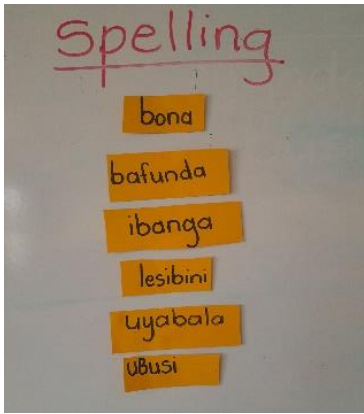 Spelling
bona
bafunda
ibanga
lesibini
uyabala
uBusi